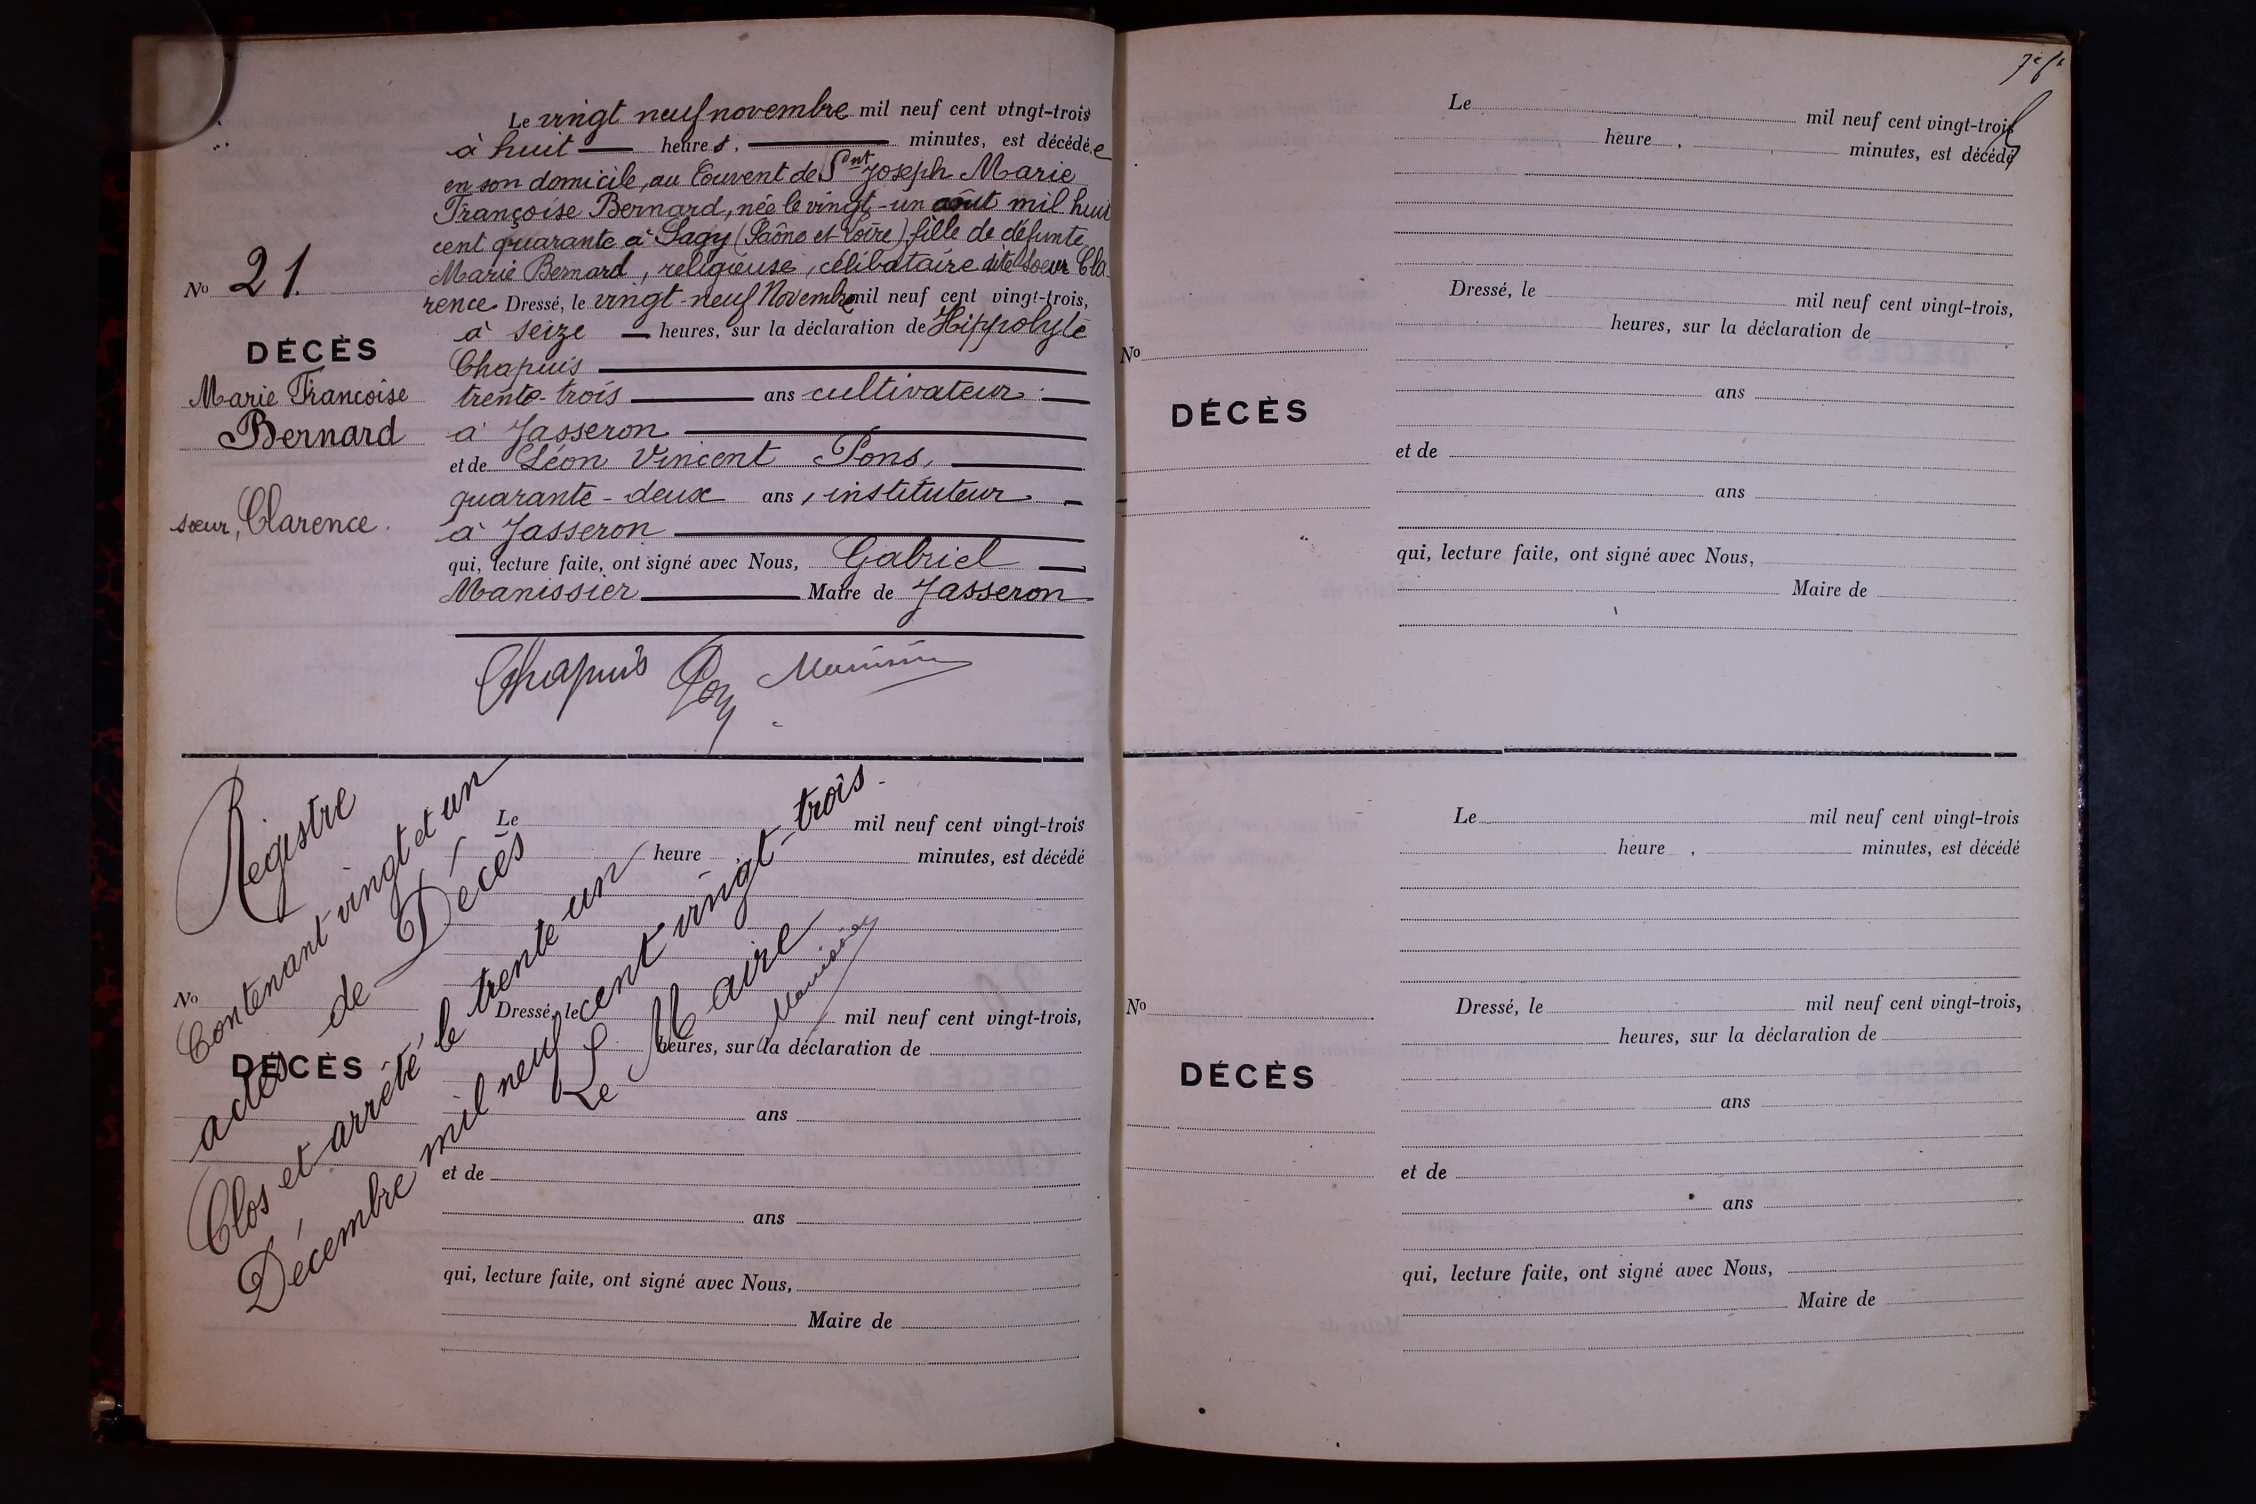 Le vingt neuf novembre mil neuf cent vingt-trois
à huit heures, minutes, est décédée
en son domicile, au Couvent de Snt Joseph Marie
Françoise Bernard, née le vingt-un août mil huit
cent quarante à Sagy (Saône et Loire) fille de défunte
Marie Bernard, religieuse, célibataire dite Soeur Cla-
rence Dressé, le vingt-neuf Novembre mil neuf cent vingt-trois,
à seize heures, sur la déclaration de Hippolyte
Chapuis
trente-trois ans cultivateur
à Jasseron
et de Léon Vincent Pons,
quarante-deux ans, instituteur
à Jasseron
qui, lecture faite, ont signé avec Nous, Gabriel
Manissier Maire de Jasseron
No 21.
DÉCÈS
Marie Francoise
Bernard
sœur, Clarence.
Chapuis Pons Manissier
Registre
Contenant vingt et un
actes de Décès
Clos et arrêté le trente-un
Décembre mil neuf cent vingt-trois.
Le Maire
Manissier
Le mil neuf cent vingt-trois
heure , minutes, est décédé
Dressé, le mil neuf cent vingt-trois,
heures, sur la déclaration de
No
DÉCÈS
ans
et de
ans
qui, lecture faite, ont signé avec Nous,
Maire de
Le mil neuf cent vingt-trois
heure , minutes, est décédé
Dressé, le mil neuf cent vingt-trois,
heures, sur la déclaration de
No
DÉCÈS
ans
et de
ans
qui, lecture faite, ont signé avec Nous,
Maire de
Le mil neuf cent vingt-trois
heure , minutes, est décédé
Dressé, le mil neuf cent vingt-trois,
heures, sur la déclaration de
No
DÉCÈS
ans
et de
ans
qui, lecture faite, ont signé avec Nous,
Maire de